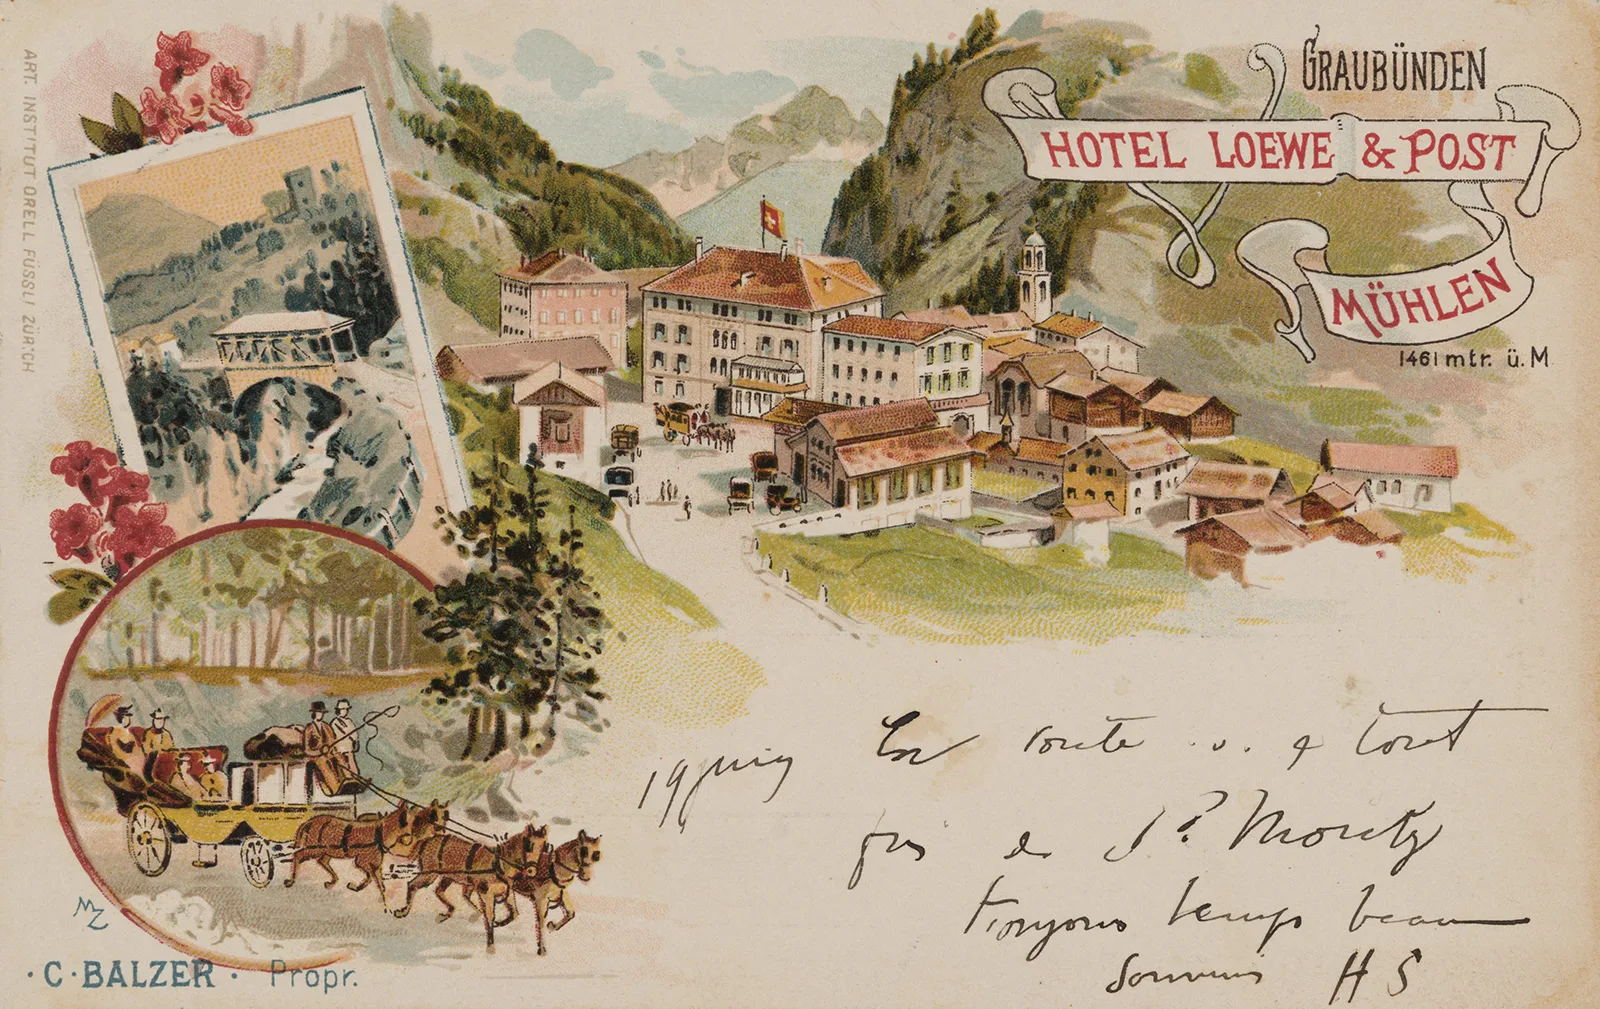 GRAUBÜNDEN
HOTEL LOEWE & POST
MÜHLEN
1461 mtr. ü. M
ART. INSTITUT ORELL FÜSSLI ZÜRICH
19 juin
En route
près de St Moritz
Toujours temps beau
Souvenir HS
MZ
· C · BALZER · Propr.